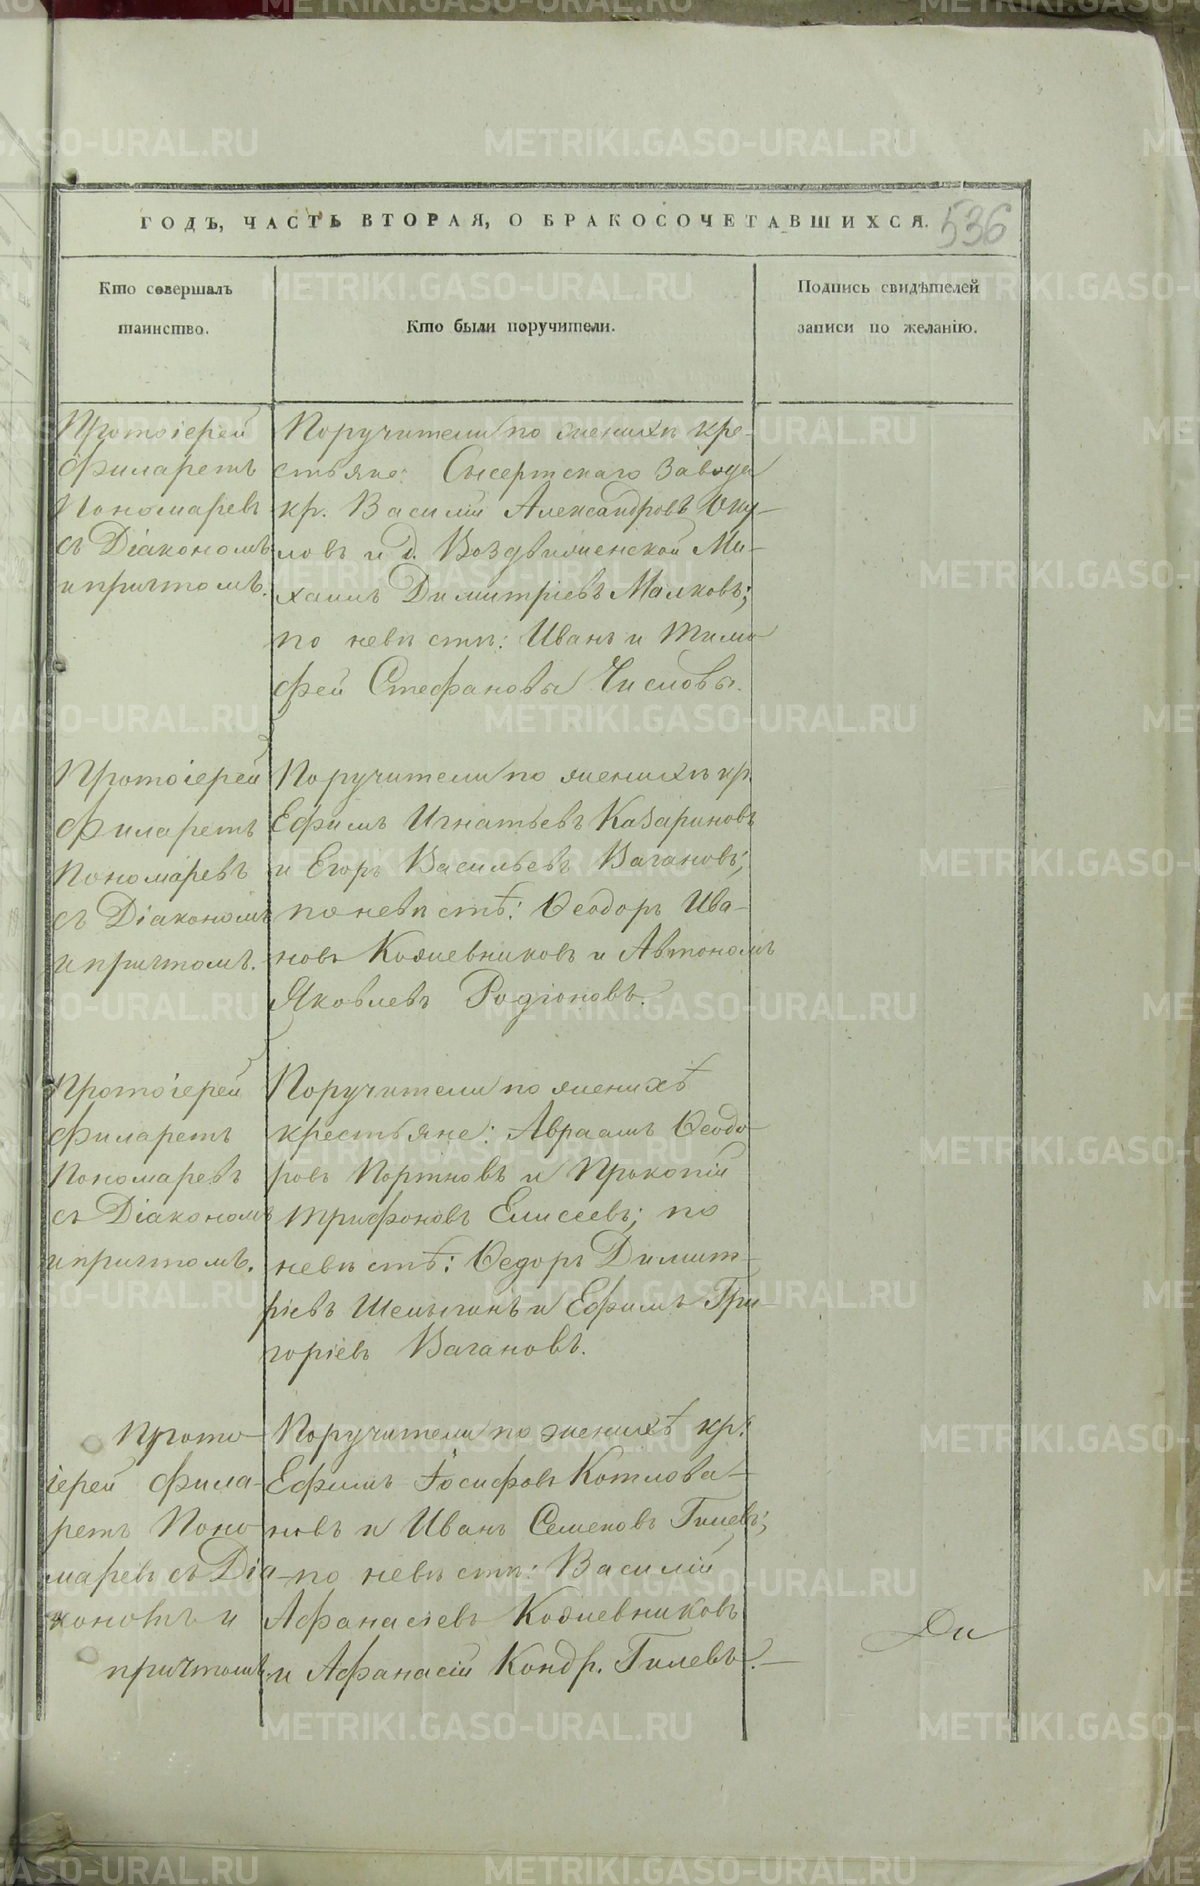 ГОДЪ, ЧАСТЬ ВТОРАЯ, О БРАКОСОЧЕТАВШИХСЯ.
536
Кто совершалъ
таинство.
Кто были поручители.
Подпись свидѣтелей
записи по желанію.
Протоіерей
Филаретъ
Пономаревъ
съ Діакономъ
и причтомъ.
Поручители по женихѣ кре-
стьяне: Сысертскаго завода
кр. Василій Александровъ Оку-
ловъ и д. Воздвиженской Ми-
хаилъ Димитріевъ Малковъ;
по невѣстѣ: Иванъ и Тимо
фей Стефановы Числовы.
Протоіерей
Филаретъ
Пономаревъ
съ Діакономъ
и причтомъ.
Поручители по женихѣ кр.
Ефимъ Игнатьевъ Казариновъ
и Егоръ Васильевъ Вагановъ;
по невѣстѣ: Ѳеодоръ Ива-
новъ Кожевниковъ и Автономъ
Яковлевъ Родіоновъ.
Протоіерей
Филаретъ
Пономаревъ
съ Діакономъ
и причтомъ.
Поручители по женихѣ
крестьяне: Авраамъ Ѳеодо-
ровъ Портновъ и Прокопій
Трифоновъ Елисеевъ; по
невѣстѣ: Ѳедоръ Димит-
ріевъ и Ефимъ Гри-
горіевъ Вагановъ.
Прото
іерей Фила-
ретъ Поно
маревъ съ Діа-
кономъ и
причтомъ.
Поручители по женихѣ кр.
Ефимъ Іосифовъ Котлова-
новъ и Иванъ Семеновъ Гилевъ;
по невѣстѣ: Василій
Афанасіевъ Кожевниковъ
и Афанасій Кондр. Гилевъ.
Ди
METRIKI.GASO-URAL.RU